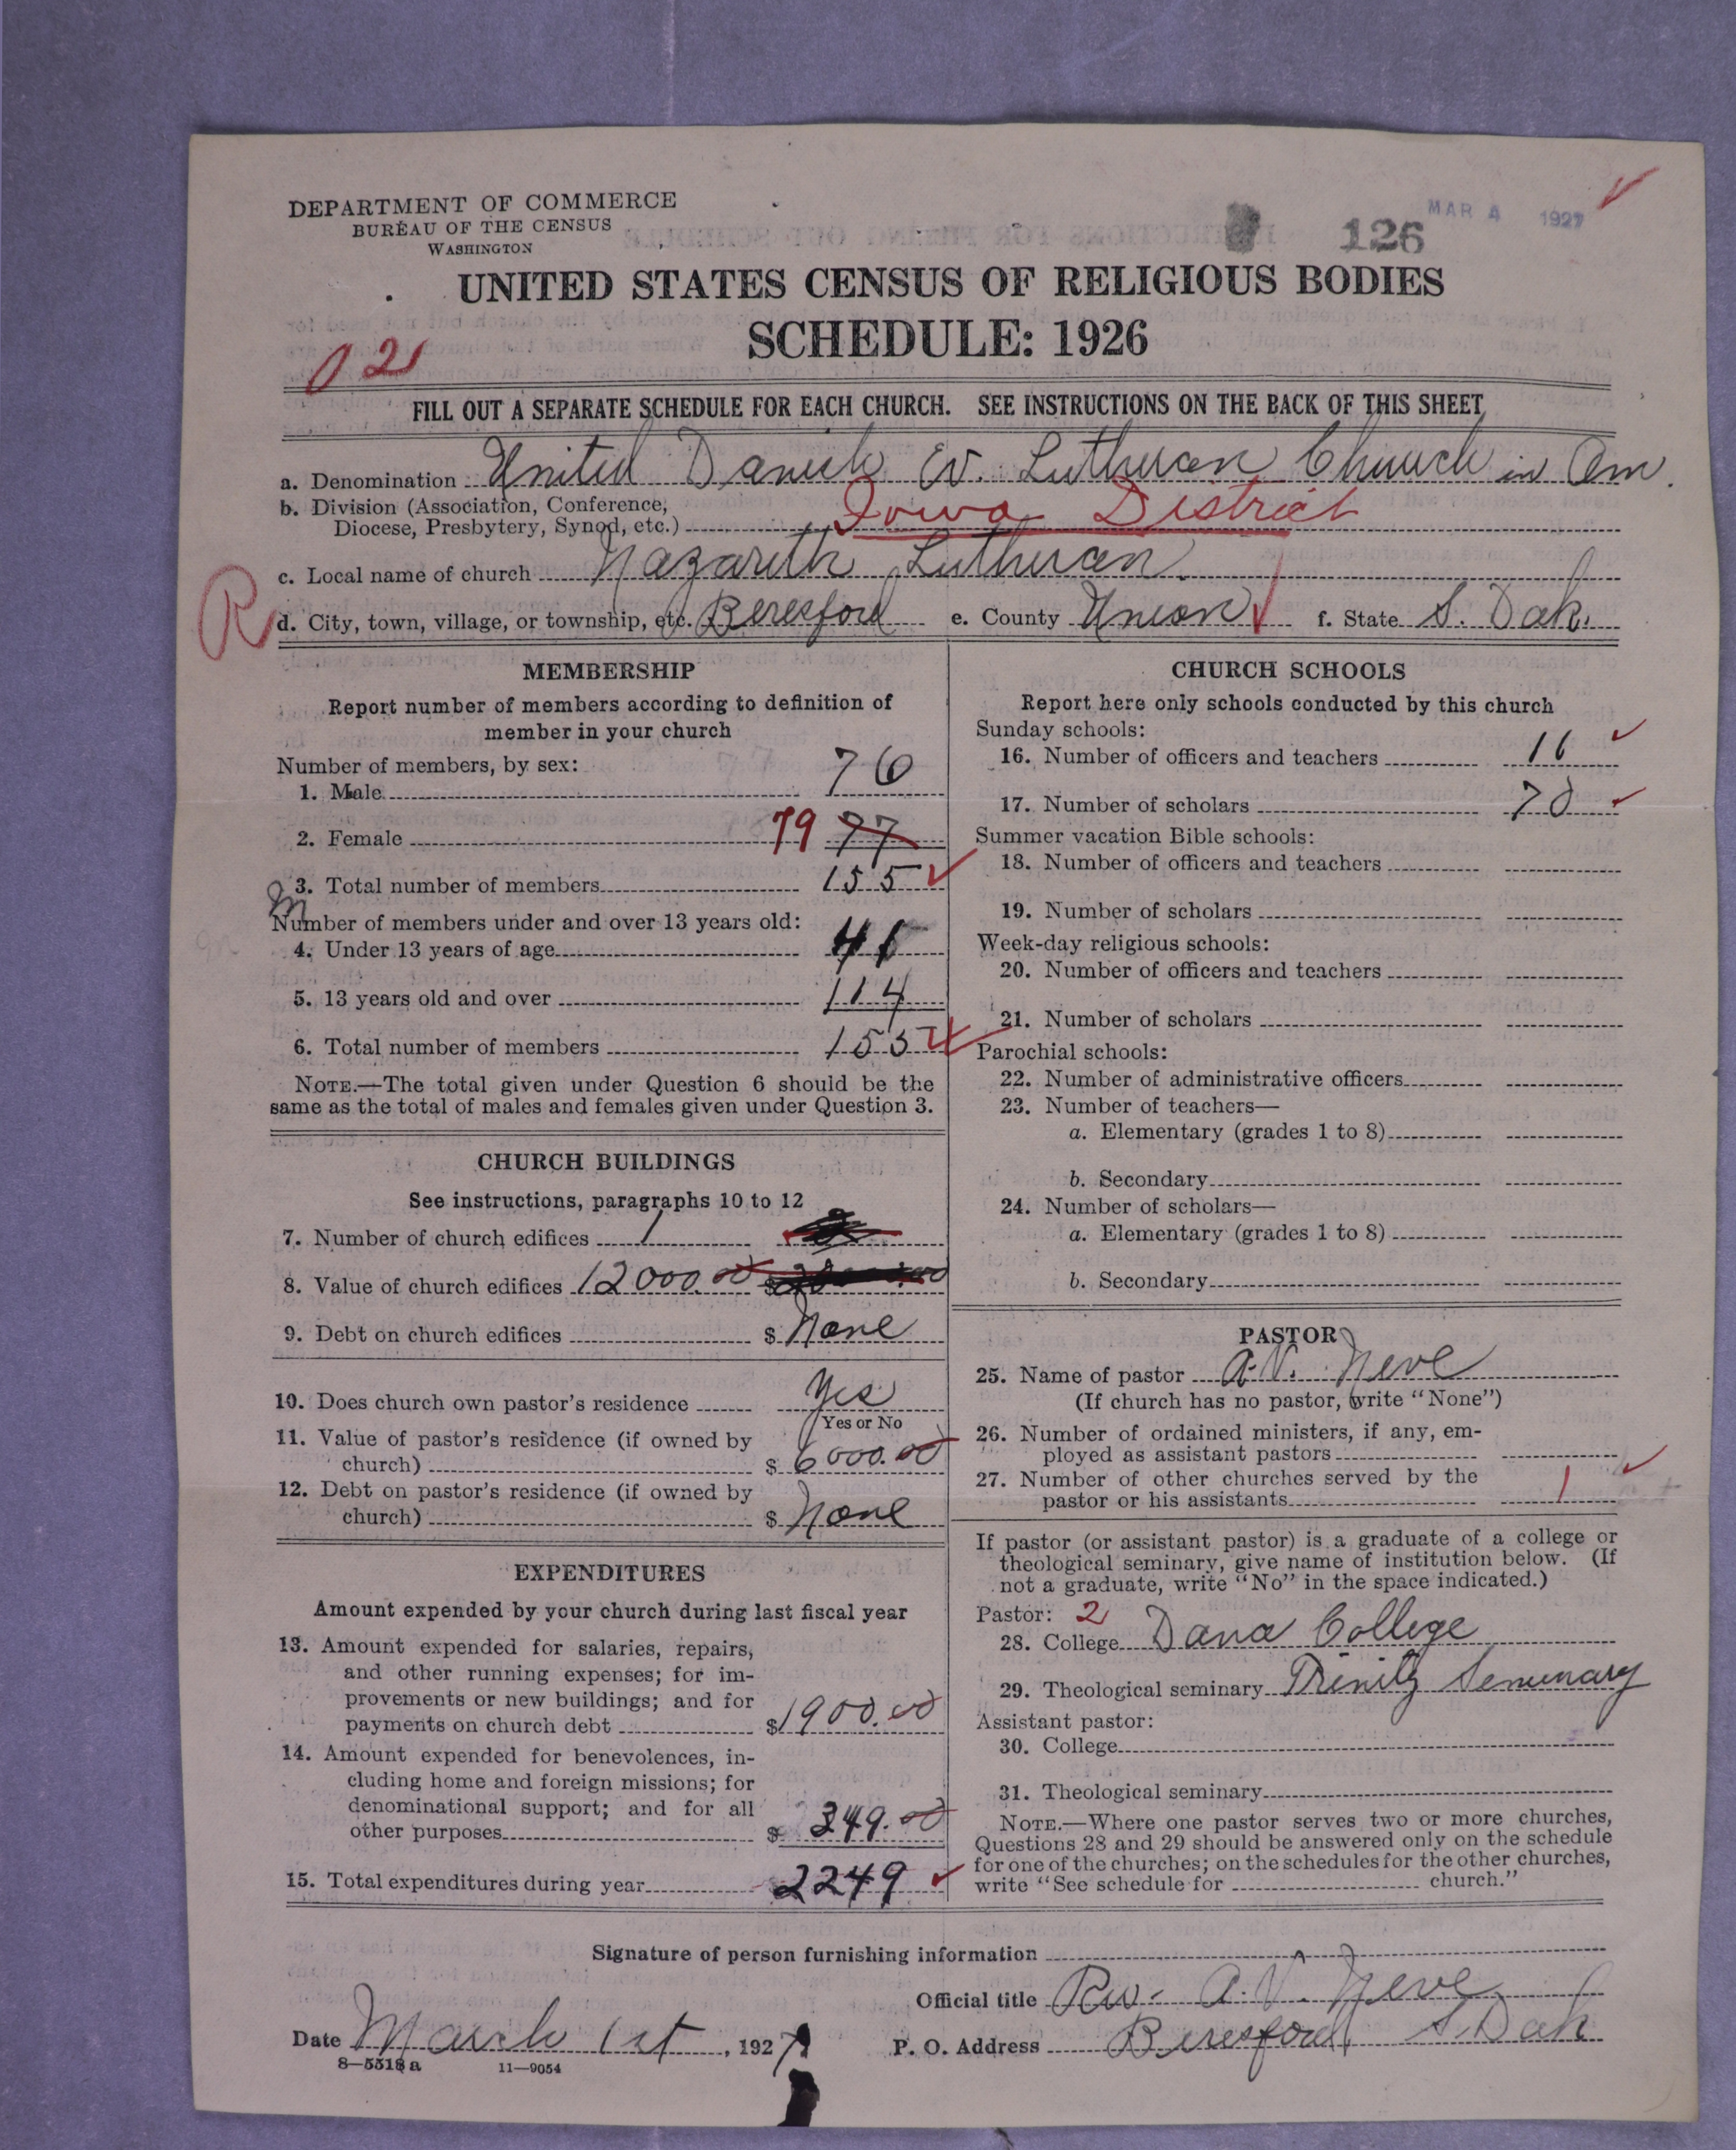 DEPARTMENT OF COMMERCE
BUREAU OF THE CENSUS
WASHINGTON
126
MAR 4 1927
UNITED STATES CENSUS OF RELIGIOUS BODIES
SCHEDULE: 1926
021
FILL OUT A SEPARATE SCHEDULE FOR EACH CHURCH. SEE INSTRUCTIONS ON THE BACK OF THIS SHEET
a. Denomination United Danish Ev. Lutheran Church in Am.
b. Division (Association, Conference,
Diocese, Presbytery, Synod, etc.) Iowa District
c. Local name of church Nazareth Lutheran
R
d. City, town, village, or township, etc. Beresford e. County Union f. State S. Dak.
MEMBERSHIP
Report number of members according to definition of
member in your church
Number of members, by sex:
1. Male 76
2. Female 79 77
3. Total number of members 155
Number of members under and over 13 years old:
4. Under 13 years of age 41
5. 13 years old and over 114
6. Total number of members 155
NOTE.—The total given under Question 6 should be the
same as the total of males and females given under Question 3.
CHURCH BUILDINGS
See instructions, paragraphs 10 to 12
7. Number of church edifices 1
8. Value of church edifices 12000.00 $
9. Debt on church edifices $ None
10. Does church own pastor's residence Yes
Yes or No
11. Value of pastor's residence (if owned by
church) $ 6000.00
12. Debt on pastor's residence (if owned by
church) $ None
EXPENDITURES
Amount expended by your church during last fiscal year
13. Amount expended for salaries, repairs,
and other running expenses; for im-
provements or new buildings; and for
payments on church debt $1900.00
14. Amount expended for benevolences, in-
cluding home and foreign missions; for
denominational support; and for all
other purposes $ 349.00
15. Total expenditures during year 2249
CHURCH SCHOOLS
Report here only schools conducted by this church
Sunday schools:
16. Number of officers and teachers 16
17. Number of scholars 70
Summer vacation Bible schools:
18. Number of officers and teachers
19. Number of scholars
Week-day religious schools:
20. Number of officers and teachers
21. Number of scholars
Parochial schools:
22. Number of administrative officers
23. Number of teachers—
a. Elementary (grades 1 to 8)
b. Secondary
24. Number of scholars—
a. Elementary (grades 1 to 8)
b. Secondary
PASTOR
25. Name of pastor A.V. Neve
(If church has no pastor, write "None")
26. Number of ordained ministers, if any, em-
ployed as assistant pastors
27. Number of other churches served by the
pastor or his assistants 1
If pastor (or assistant pastor) is a graduate of a college or
theological seminary, give name of institution below. (If
not a graduate, write "No" in the space indicated.)
Pastor: 2
28. College Dana College
29. Theological seminary Trinity Seminary
Assistant pastor:
30. College
31. Theological seminary
NOTE.—Where one pastor serves two or more churches,
Questions 28 and 29 should be answered only on the schedule
for one of the churches; on the schedules for the other churches,
write "See schedule for church."
Signature of person furnishing information
Official title Rev. A.V. Neve
Date March 1st, 1927 P. O. Address Beresford, S Dak
8—5518a 11—9054